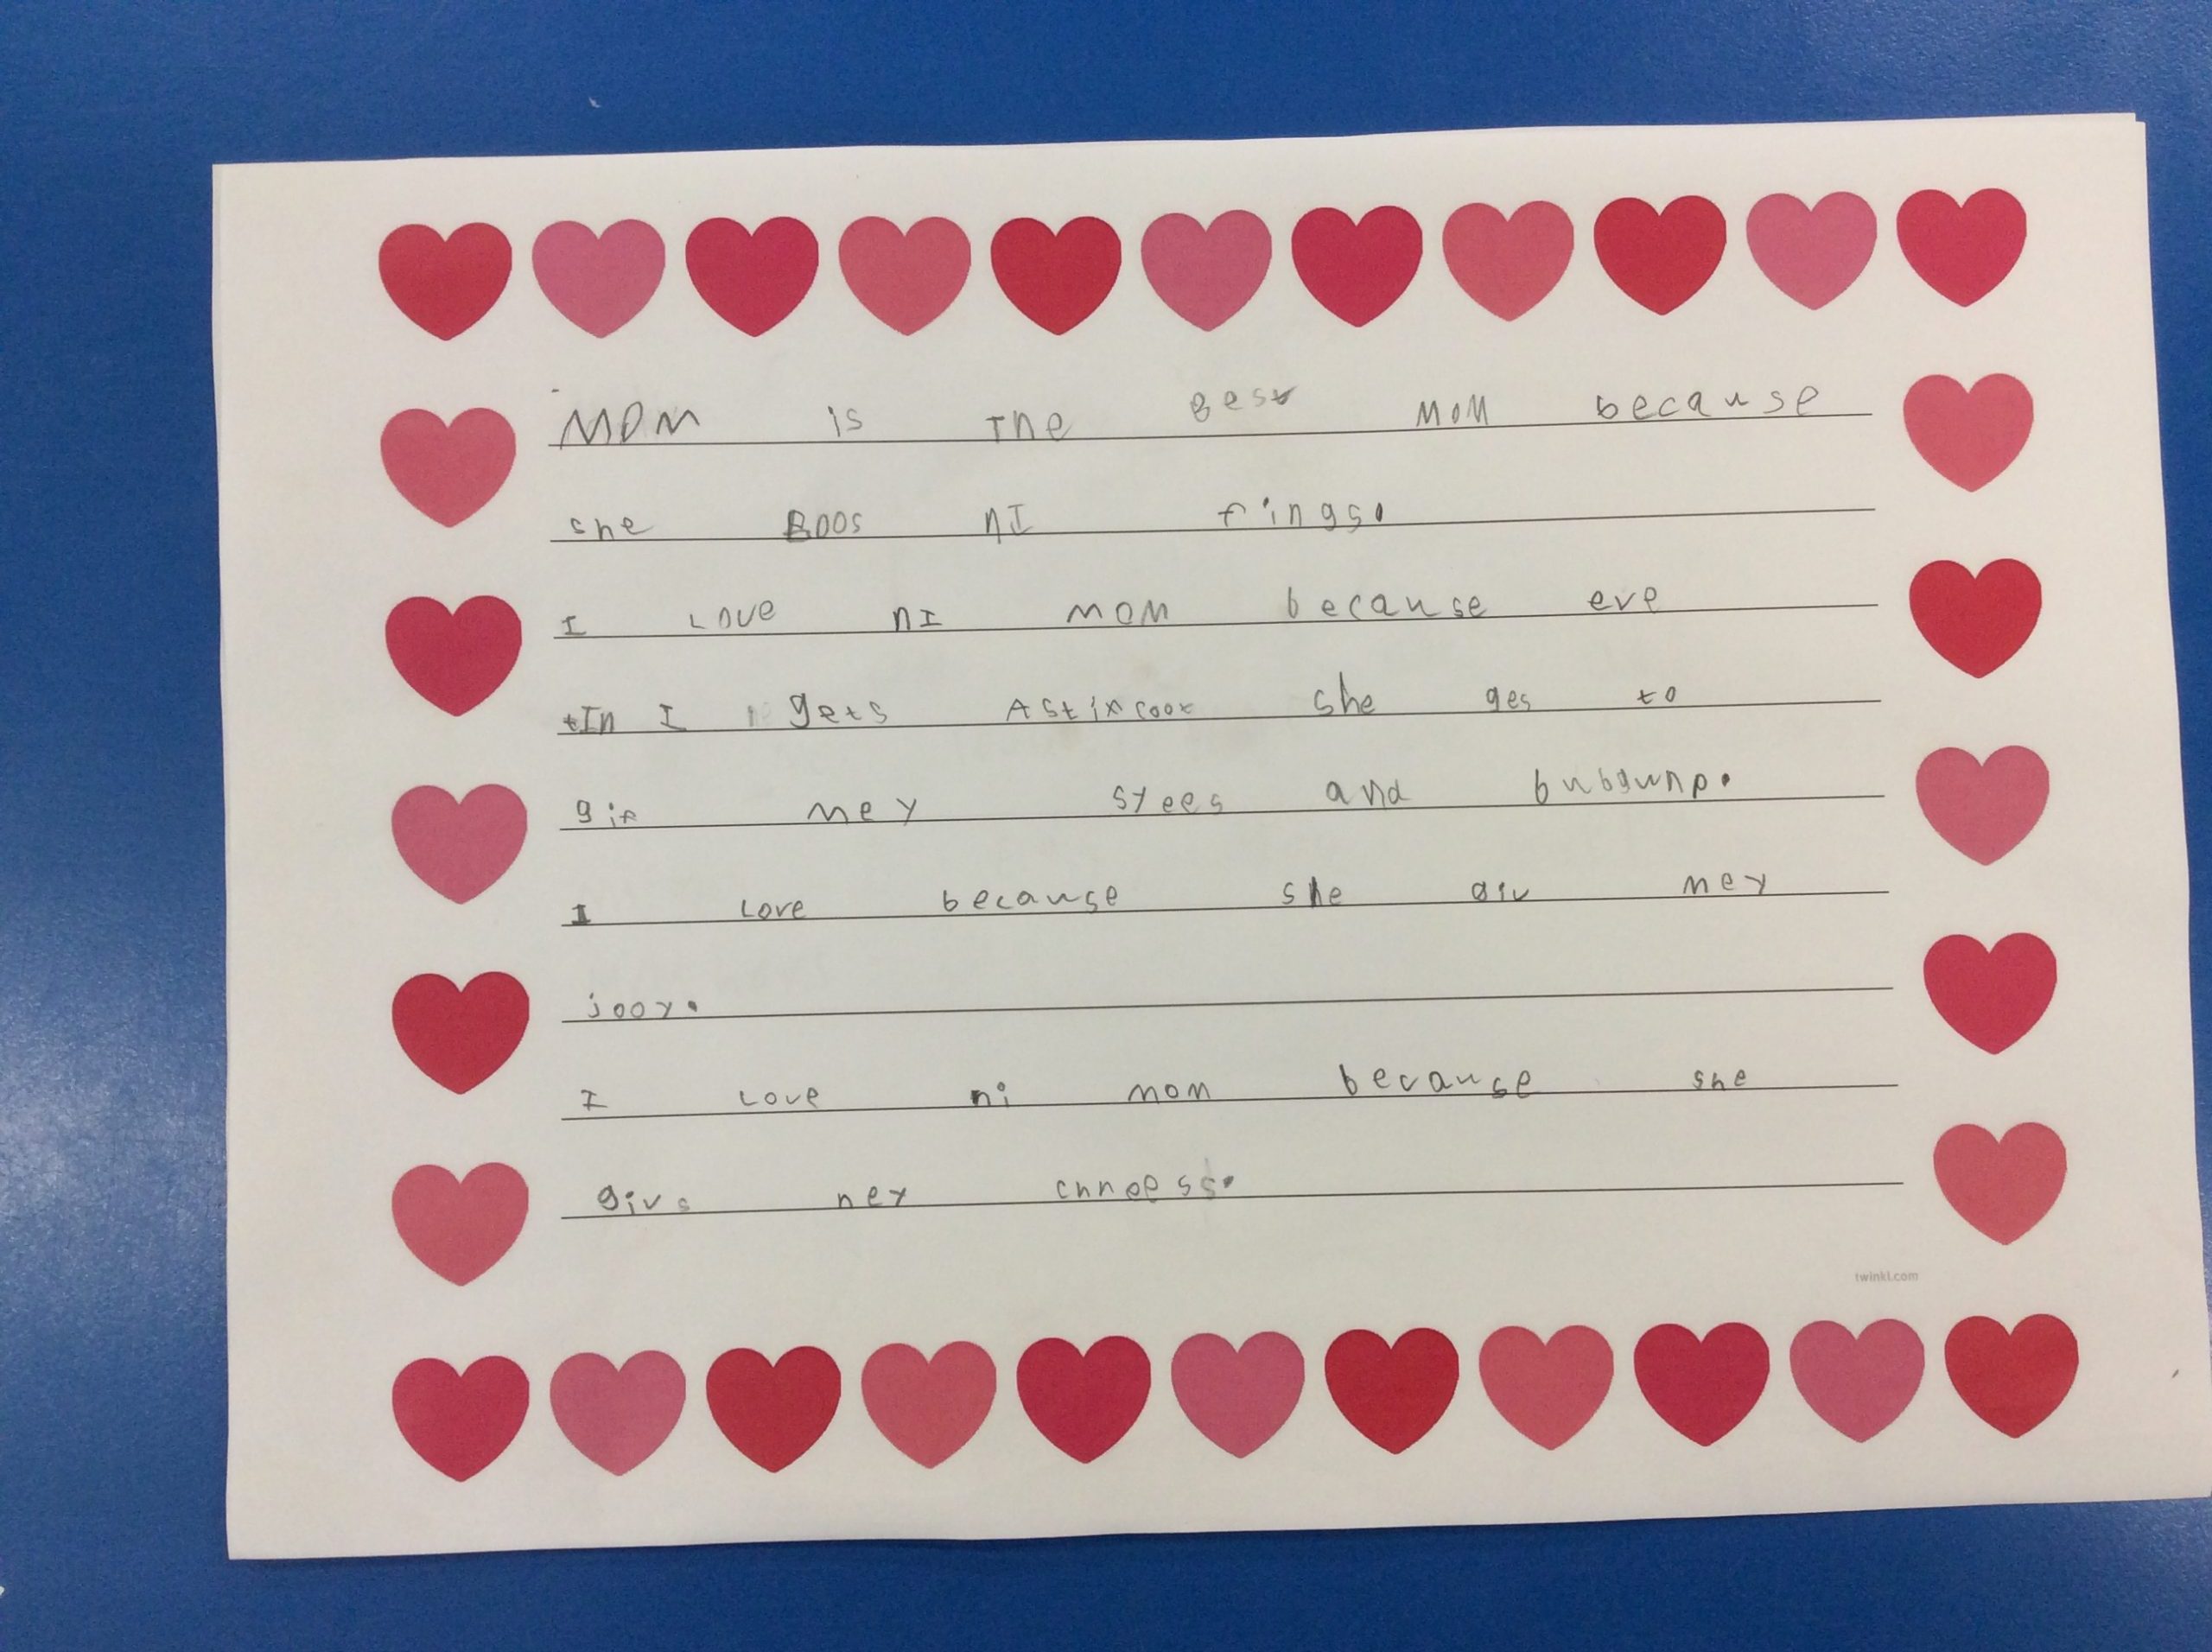 MOM is The Best MOM because
she BOOS nI fings.
I LOVE nI MOM because eve
tIn I gets A stixcoot she ges to
gif mey syees and bubgunp.
I Love because she giv mey
jooy.
I Love ni mom because she
givs ney chneess.
twinkl.com